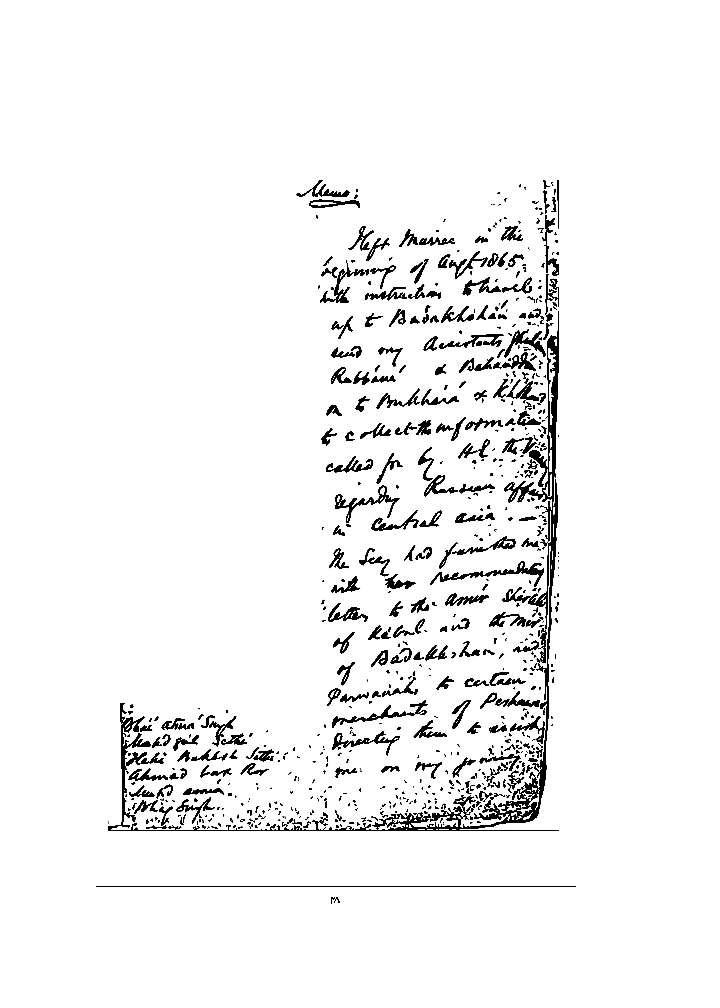 Memo:
I left Murree in the
beginning of Augt. 1865,
with instructions to travel
up to Badakhshán and
send my Assistants
Rabbáni &
on to Bukhárá &
to collect the information
called for by H.E. the
regarding Russian affairs
in central asia. —
The Secy had furnished me
with two recommendatory
letters to the Amír
of Kábul and the Mír
of Badakhshán, and
Parwanahs to certain
merchants of Peshawar
directing them to assist
me on my journey
Singh
Sethi
Bakhsh Sethi
Ahmad
Singh.